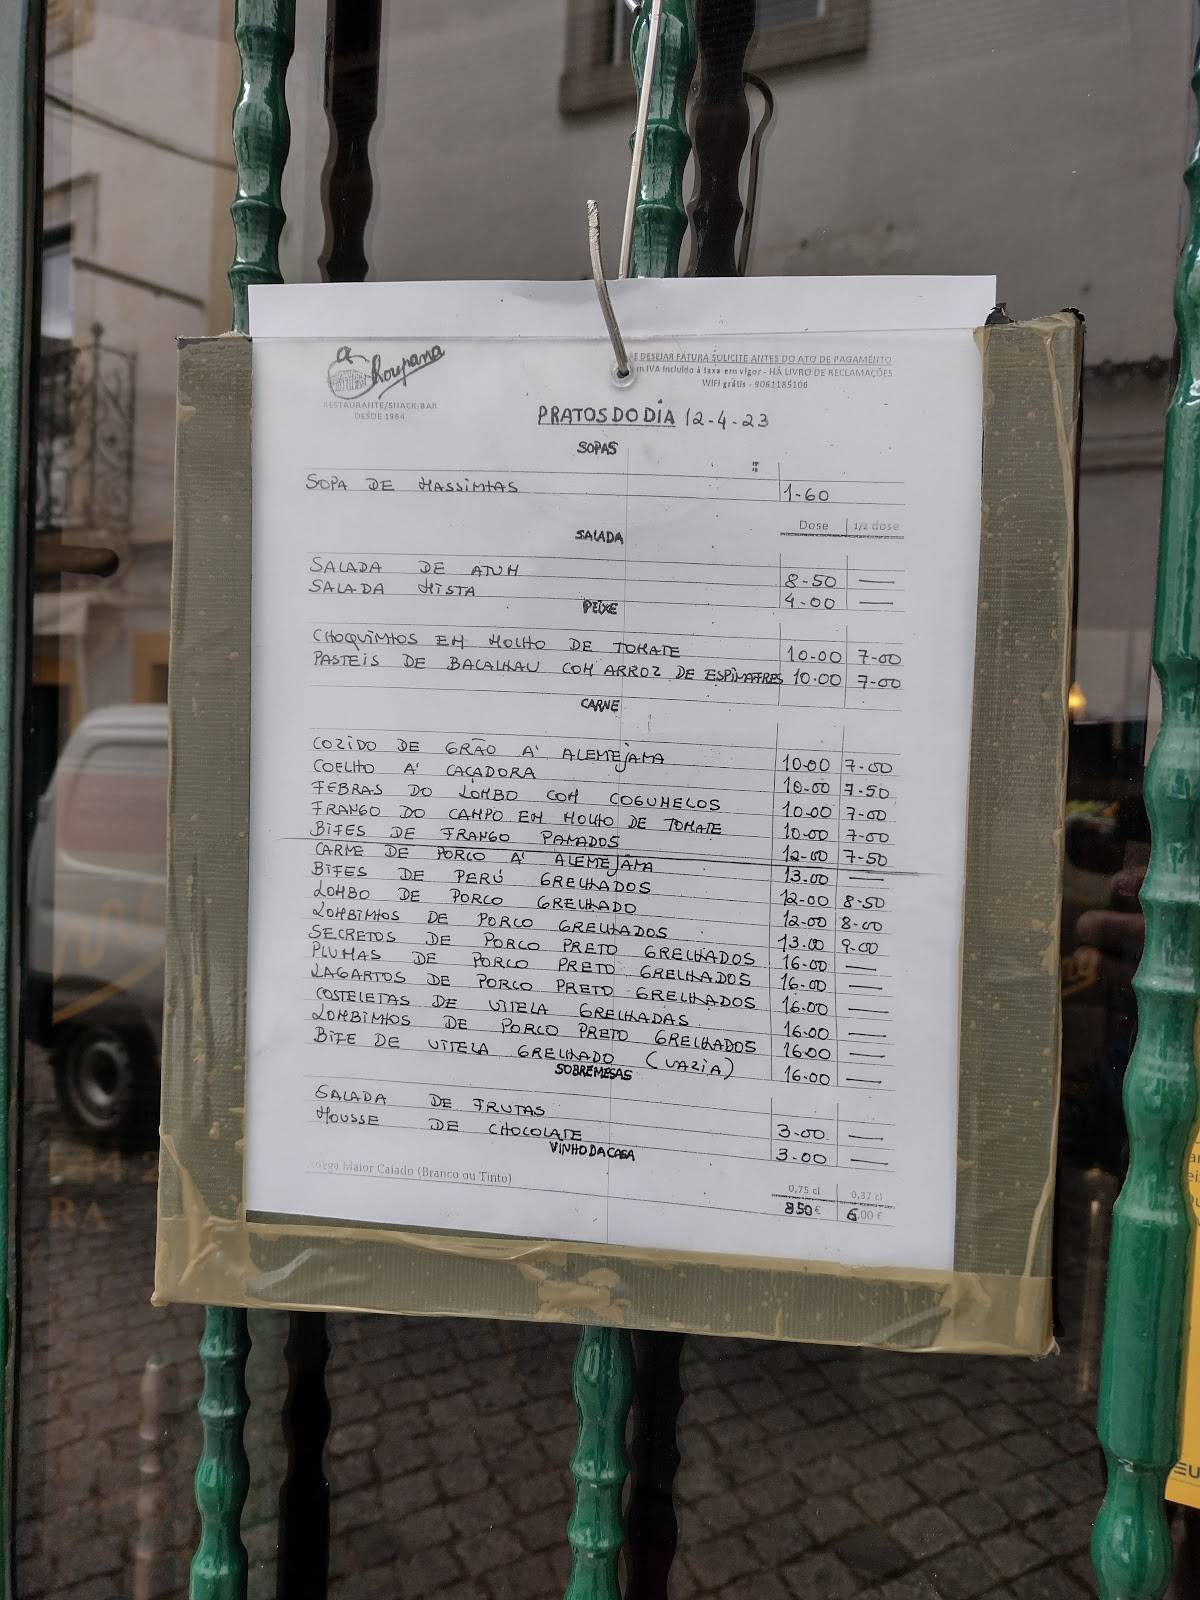 a Choupana
RESTAURANTE/SNACK-BAR
DESDE 1984
E DESEJAR FATURA SOLICITE ANTES DO ATO DE PAGAMENTO
m IVA incluído à taxa em vigor - HÁ LIVRO DE RECLAMAÇÕES
WIFI grátis - 9061185106
PRATOS DO DIA 12-4-23
SOPAS
SOPA DE MASSINHAS 1-60
Dose 1/2 dose
SALADA
SALADA DE ATUM 8-50 —
SALADA MISTA 4-00 —
PEIXE
CHOQUINHOS EM MOLHO DE TOMATE 10-00 7-00
PASTEIS DE BACALHAU COM ARROZ DE ESPINAFRES 10-00 7-00
CARNE
COZIDO DE GRÃO A' ALENTEJANA 10-00 7-00
COELHO A' CAÇADORA 10-00 7-50
FEBRAS DO LOMBO COM COGUMELOS 10-00 7-00
FRANGO DO CAMPO EM MOLHO DE TOMATE 10-00 7-00
BIFES DE FRANGO PANADOS 12-00 7-50
CARNE DE PORCO A' ALENTEJANA 13.00 —
BIFES DE PERÚ GRELHADOS 12-00 8-50
LOMBO DE PORCO GRELHADO 12-00 8-00
LOMBINHOS DE PORCO GRELHADOS 13.00 9-00
SECRETOS DE PORCO PRETO GRELHADOS 16-00 —
PLUMAS DE PORCO PRETO GRELHADOS 16-00 —
LAGARTOS DE PORCO PRETO GRELHADOS 16-00 —
COSTELETAS DE VITELA GRELHADAS 16-00 —
LOMBINHOS DE PORCO PRETO GRELHADOS 16-00 —
BIFE DE VITELA GRELHADO (VAZIA) 16-00 —
SOBREMESAS
SALADA DE FRUTAS 3-00 —
MOUSSE DE CHOCOLATE 3-00 —
VINHO DA CASA
0,75 cl 0,37 cl
Adega Maior Caiado (Branco ou Tinto) 8 50 € 6,00 €